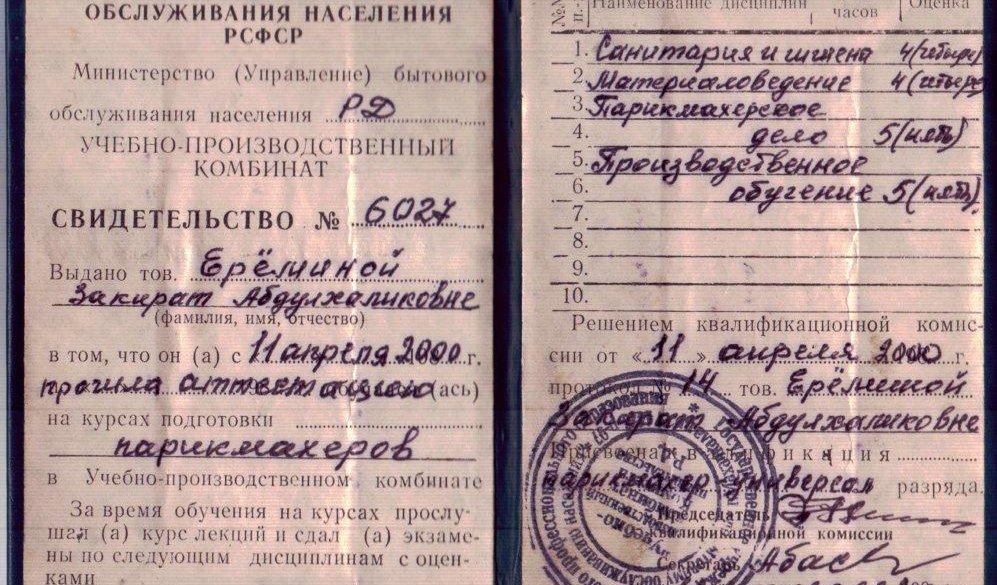 ОБСЛУЖИВАНИЯ НАСЕЛЕНИЯ
РСФСР
Министерство (Управление) бытового
обслуживания населения РД
УЧЕБНО-ПРОИЗВОДСТВЕННЫЙ
КОМБИНАТ
СВИДЕТЕЛЬСТВО № 6027
Выдано тов. Ерёминой
Закират Абдулхаликовне
(фамилия, имя, отчество)
в том, что он (а) с 11 апреля 2000 г.
прошла аттестацию (ась)
на курсах подготовки
парикмахеров
в Учебно-производственном комбинате
За время обучения на курсах прослу-
шал (а) курс лекций и сдал (а) экзаме-
ны по следующим дисциплинам с оцен-
ками
№№ п.п. Наименование дисциплин часов Оценка
1. Санитария и гигиена 4 (четыре)
2. Материаловедение 4 (четыре)
3. Парикмахерское
4. дело 5 (пять)
5. Производственное
6. обучение 5 (пять)
7.
8.
9.
10.
Решением квалификационной комис-
сии от « 11 » апреля 2000 г.
протокол № 14 тов. Ерёминой
Закират Абдулхаликовне
Присвоена квалификация
парикмахер универсал разряда.
Председатель
квалификационной комиссии
Секретарь